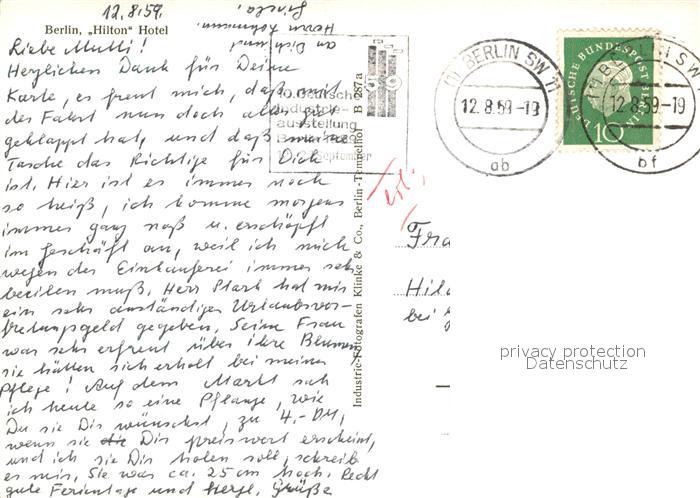 12.8.59.
Berlin, „Hilton" Hotel
Liebe Mutti!
Herzlichen Dank für Deine
Karte, es freut mich, daß mit
der Fahrt nun doch alles gut
geklappt hat, und daß meine
Tasche das Richtige für Dich
ist. Hier ist es immer noch
so heiß, ich komme morgens
immer ganz naß u. erschöpft
im Geschäft an, weil ich mich
wegen der Einkauferei immer sehr
beeilen muß. Herr Stark hat mir
ein sehr anständiges Urlaubsver-
tretungsgeld gegeben. Seine Frau
war sehr erfreut über ihre Blumen,
sie hätten sich erholt bei meiner
Pflege! Auf dem Markt sah
ich heute so eine Pflanze, wie
Du sie Dir wünschst, zu 4,- DM,
wenn sie Dir preiswert erscheint,
und ich sie Dir holen soll, schreib
es mir. Sie war ca. 25 cm hoch. Recht
gute Ferientage und herzl. Grüße
an Dich und
Herrn
Gisela.
Industrie-Fotografen Klinke & Co., Berlin-Tempelhof B 287a
10. deutsche
industrie-
ausstellung
september
(1) BERLIN SW 11
12.8.59-19
ab
DEUTSCHE BUNDESPOST BERLIN
10
BERLIN SW
12.8.59-19
bf
Fra
Hild
bei
privacy protection
Datenschutz